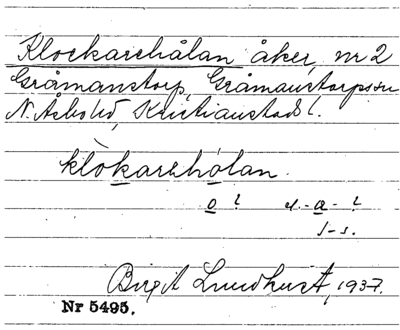 Klockarehålan åker, nr 2
Gråmanstorp, Gråmanstorps sn
N. Åsbo hd, Kristianstads l.
klòkarehòlan.
o ? el. -a- ?
s-s.
Birgit Lundhurst, 1937.
Nr 5495.